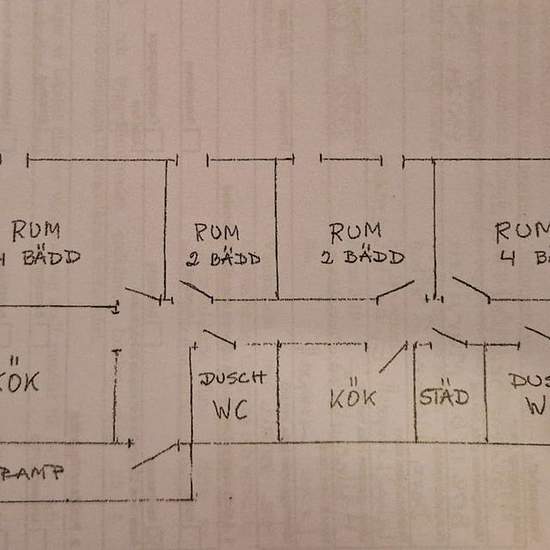 RUM
4 BÄDD
RUM
2 BÄDD
RUM
2 BÄDD
RUM
4 B
KÖK
DUSCH
WC
KÖK
STÄD
DUS
W
RAMP